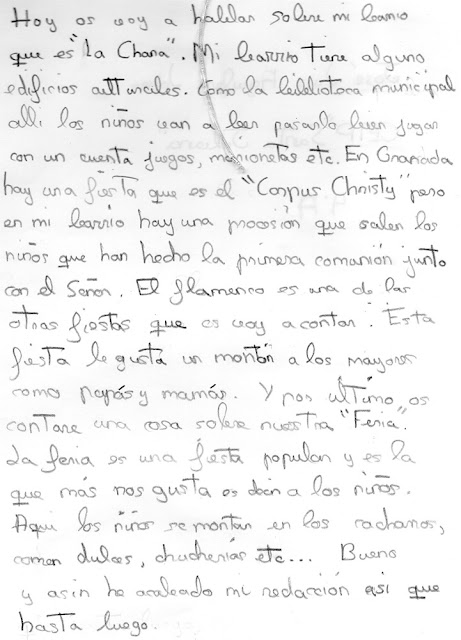 Hoy os voy a hablar sobre mi barrio
que es "La Chana". Mi barrio tiene alguno
edificios alturales. Como la biblioteca municipal
alli los niños van a leer pasarlo bien jugar
con un cuenta juegos, marionetas etc. En Granada
hay una fiesta que es el "Corpus Christy" pero
en mi barrio hay una procesión que salen los
niños que han hecho la primera comunión junto
con el Señor. El flamenco es una de las
otras fiestas que os voy a contar. Esta
fiesta le gusta un montón a los mayores
como papás y mamás. Y por último os
contare una cosa sobre nuestra "Feria".
La feria es una fiesta popular y es la
que más nos gusta es decir a los niños.
Aqui los niños se montan en los cacharros,
comen dulces, chucherías etc... Bueno
y asin he acabado mi redacción asi que
hasta luego.